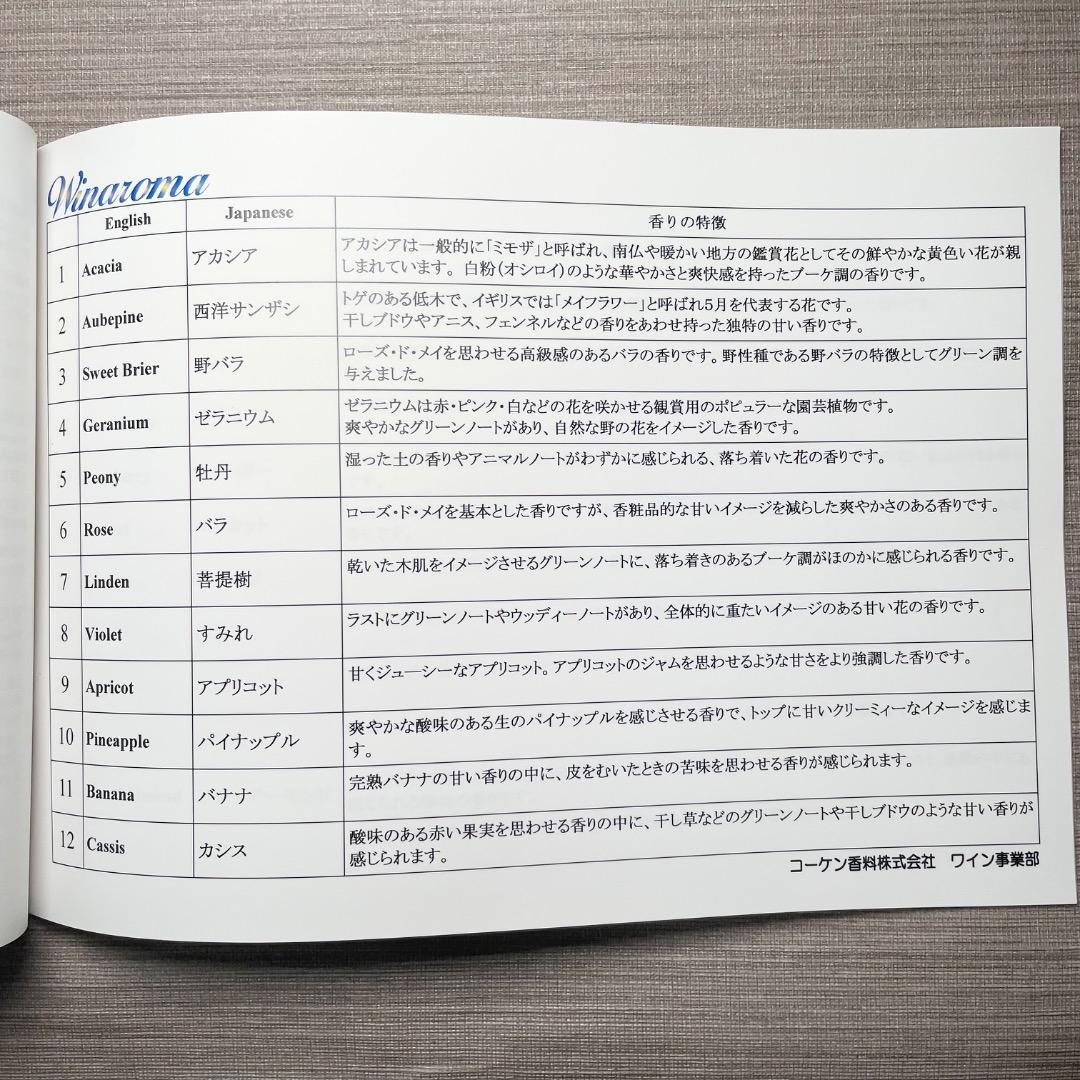 Winaroma
English Japanese 香りの特徴
1 Acacia アカシア アカシアは一般的に「ミモザ」と呼ばれ、南仏や暖かい地方の鑑賞花としてその鮮やかな黄色い花が親
しまれています。 白粉(オシロイ)のような華やかさと爽快感を持ったブーケ調の香りです。
2 Aubepine 西洋サンザシ トゲのある低木で、イギリスでは「メイフラワー」と呼ばれ5月を代表する花です。
干しブドウやアニス、フェンネルなどの香りをあわせ持った独特の甘い香りです。
3 Sweet Brier 野バラ ローズ・ド・メイを思わせる高級感のあるバラの香りです。野性種である野バラの特徴としてグリーン調を
与えました。
4 Geranium ゼラニウム ゼラニウムは赤・ピンク・白などの花を咲かせる観賞用のポピュラーな園芸植物です。
爽やかなグリーンノートがあり、自然な野の花をイメージした香りです。
5 Peony 牡丹 湿った土の香りやアニマルノートがわずかに感じられる、落ち着いた花の香りです。
6 Rose バラ ローズ・ド・メイを基本とした香りですが、香粧品的な甘いイメージを減らした爽やかさのある香りです。
7 Linden 菩提樹 乾いた木肌をイメージさせるグリーンノートに、落ち着きのあるブーケ調がほのかに感じられる香りです。
8 Violet すみれ ラストにグリーンノートやウッディーノートがあり、全体的に重たいイメージのある甘い花の香りです。
9 Apricot アプリコット 甘くジューシーなアプリコット。アプリコットのジャムを思わせるような甘さをより強調した香りです。
10 Pineapple パイナップル 爽やかな酸味のある生のパイナップルを感じさせる香りで、トップに甘いクリーミィーなイメージを感じま
す。
11 Banana バナナ 完熟バナナの甘い香りの中に、皮をむいたときの苦味を思わせる香りが感じられます。
12 Cassis カシス 酸味のある赤い果実を思わせる香りの中に、干し草などのグリーンノートや干しブドウのような甘い香りが
感じられます。
コーケン香料株式会社 ワイン事業部